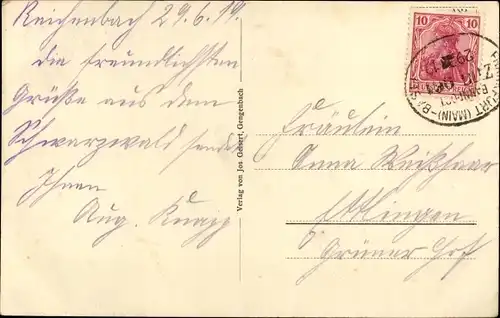 Reichenbach 29.6.19.
die freundlichsten
Grüße aus dem
Schwarzwald sendet
Ihnen
Aug. Knapp
Verlag von Jos Geisert, Gengenbach
10 10
29
FURT (MAIN)-BA
Fräulein
Anna Weißhaar
Ettlingen
Grüner Hof